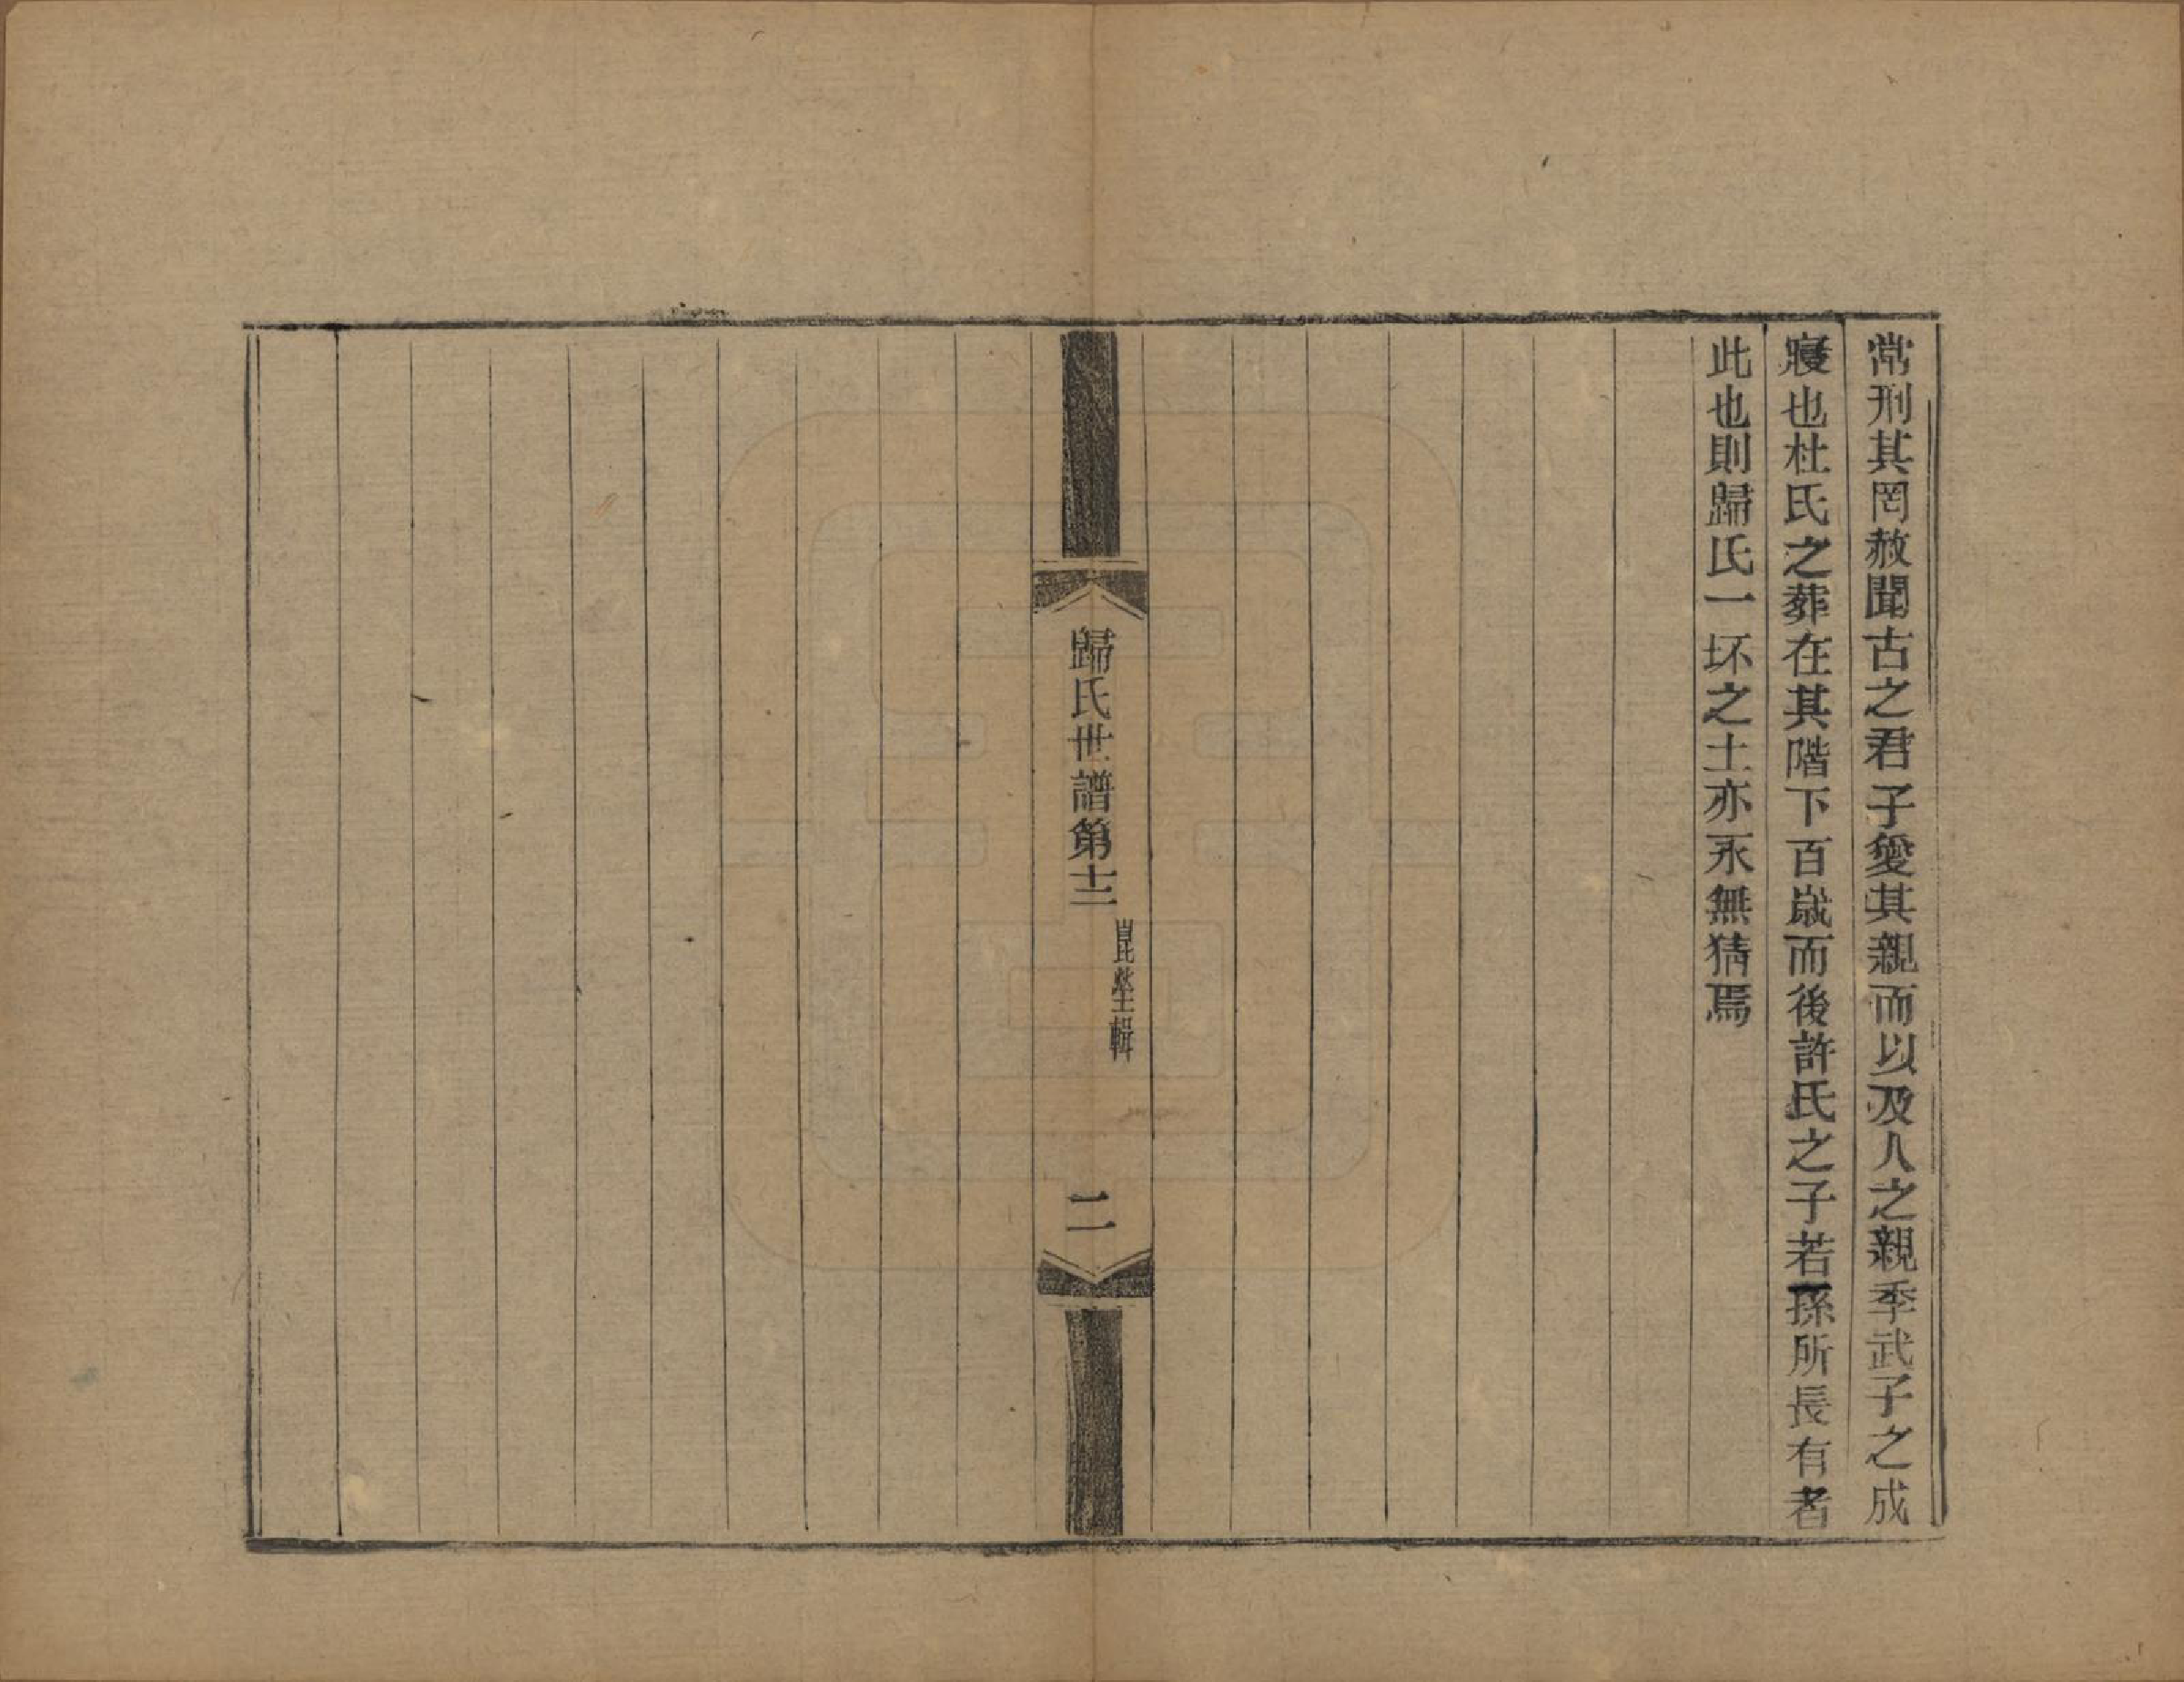 常刑其罔赦聞古之君子愛其親而以及人之親季武子之成
寢也杜氏之葬在其階下百歲而後許氏之子若孫所長有者
此也則歸氏一坏之土亦永無猜焉
歸氏世譜第十二
崑塋輯
二